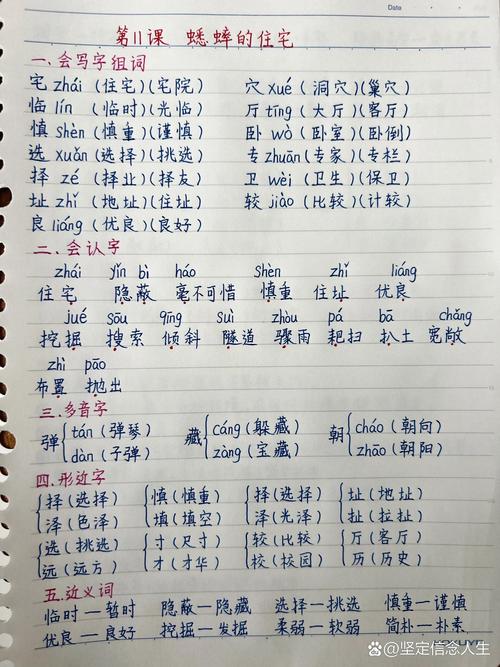 Date
第11课 蟋蟀的住宅
一.会写字组词
宅 zhái (住宅)(宅院) 穴 xué (洞穴)(巢穴)
临 lín (临时)(光临) 厅 tīng (大厅)(客厅)
慎 shèn (慎重)(谨慎) 卧 wò (卧室)(卧倒)
选 xuǎn (选择)(挑选) 专 zhuān (专家)(专栏)
择 zé (择业)(择友) 卫 wèi (卫生)(保卫)
址 zhǐ (地址)(住址) 较 jiào (比较)(计较)
良 liáng (优良)(良好)
二.会认字
zhái yǐn bì háo shèn zhǐ liáng
住宅 隐蔽 毫不可惜 慎重 住址 优良
jué sōu qīng suì zhòu pá bā chǎng
挖掘 搜索 倾斜 隧道 骤雨 耙扫 扒土 宽敞
zhì pāo
布置 抛出
三.多音字
弹 tán (弹琴) 藏 cáng (躲藏) 朝 cháo (朝向)
dàn (子弹) zàng (宝藏) zhāo (朝阳)
四.形近字
择(选择) 慎(慎重) 择(选择) 址(地址)
泽(色泽) 填(填空) 泽(光泽) 扯(拉扯)
选(挑选) 寸(尺寸) 较(比较) 厅(客厅)
远(远方) 才(才华) 校(校园) 历(历史)
五.近义词
临时—暂时 隐蔽—隐藏 选择—挑选 慎重—谨慎
优良—良好 挖掘—发掘 柔弱—软弱 简朴—朴素
@坚定信念人生